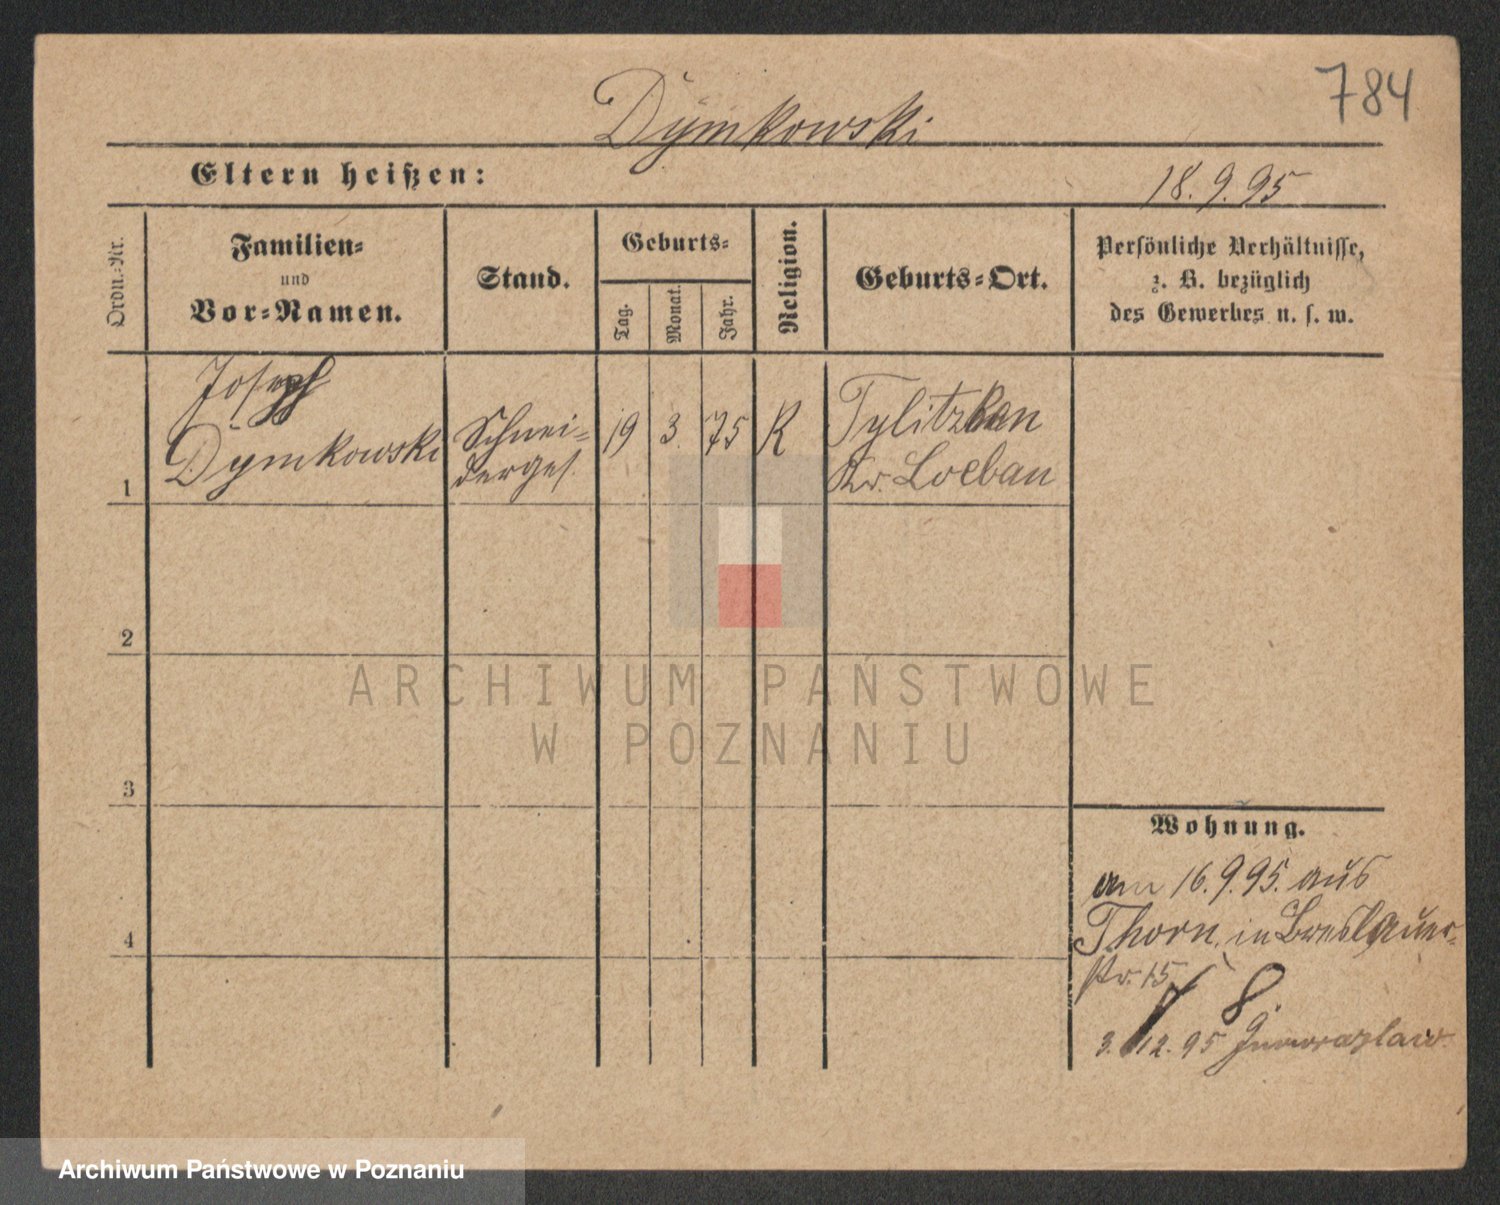 784
Dymkowski
Eltern heißen:
18.9.95
Ordn.-Nr.
Familien-
und
Vor-Namen.
Stand.
Geburts-
Tag.
Monat.
Jahr.
Religion.
Geburts-Ort.
Persönliche Verhältnisse,
z. B. bezüglich
des Gewerbes u. s. w.
1
Joseph
Dymkowski
Schnei-
derges.
19
3.
75
K
Tylitzken
Kr. Loebau
2
3
4
Wohnung.
am 16.9.95. aus
Thorn, in Breslauer-
str. 15
3.12.95 Inowrazlaw.
ARCHIWUM PAŃSTWOWE
W POZNANIU
Archiwum Państwowe w Poznaniu